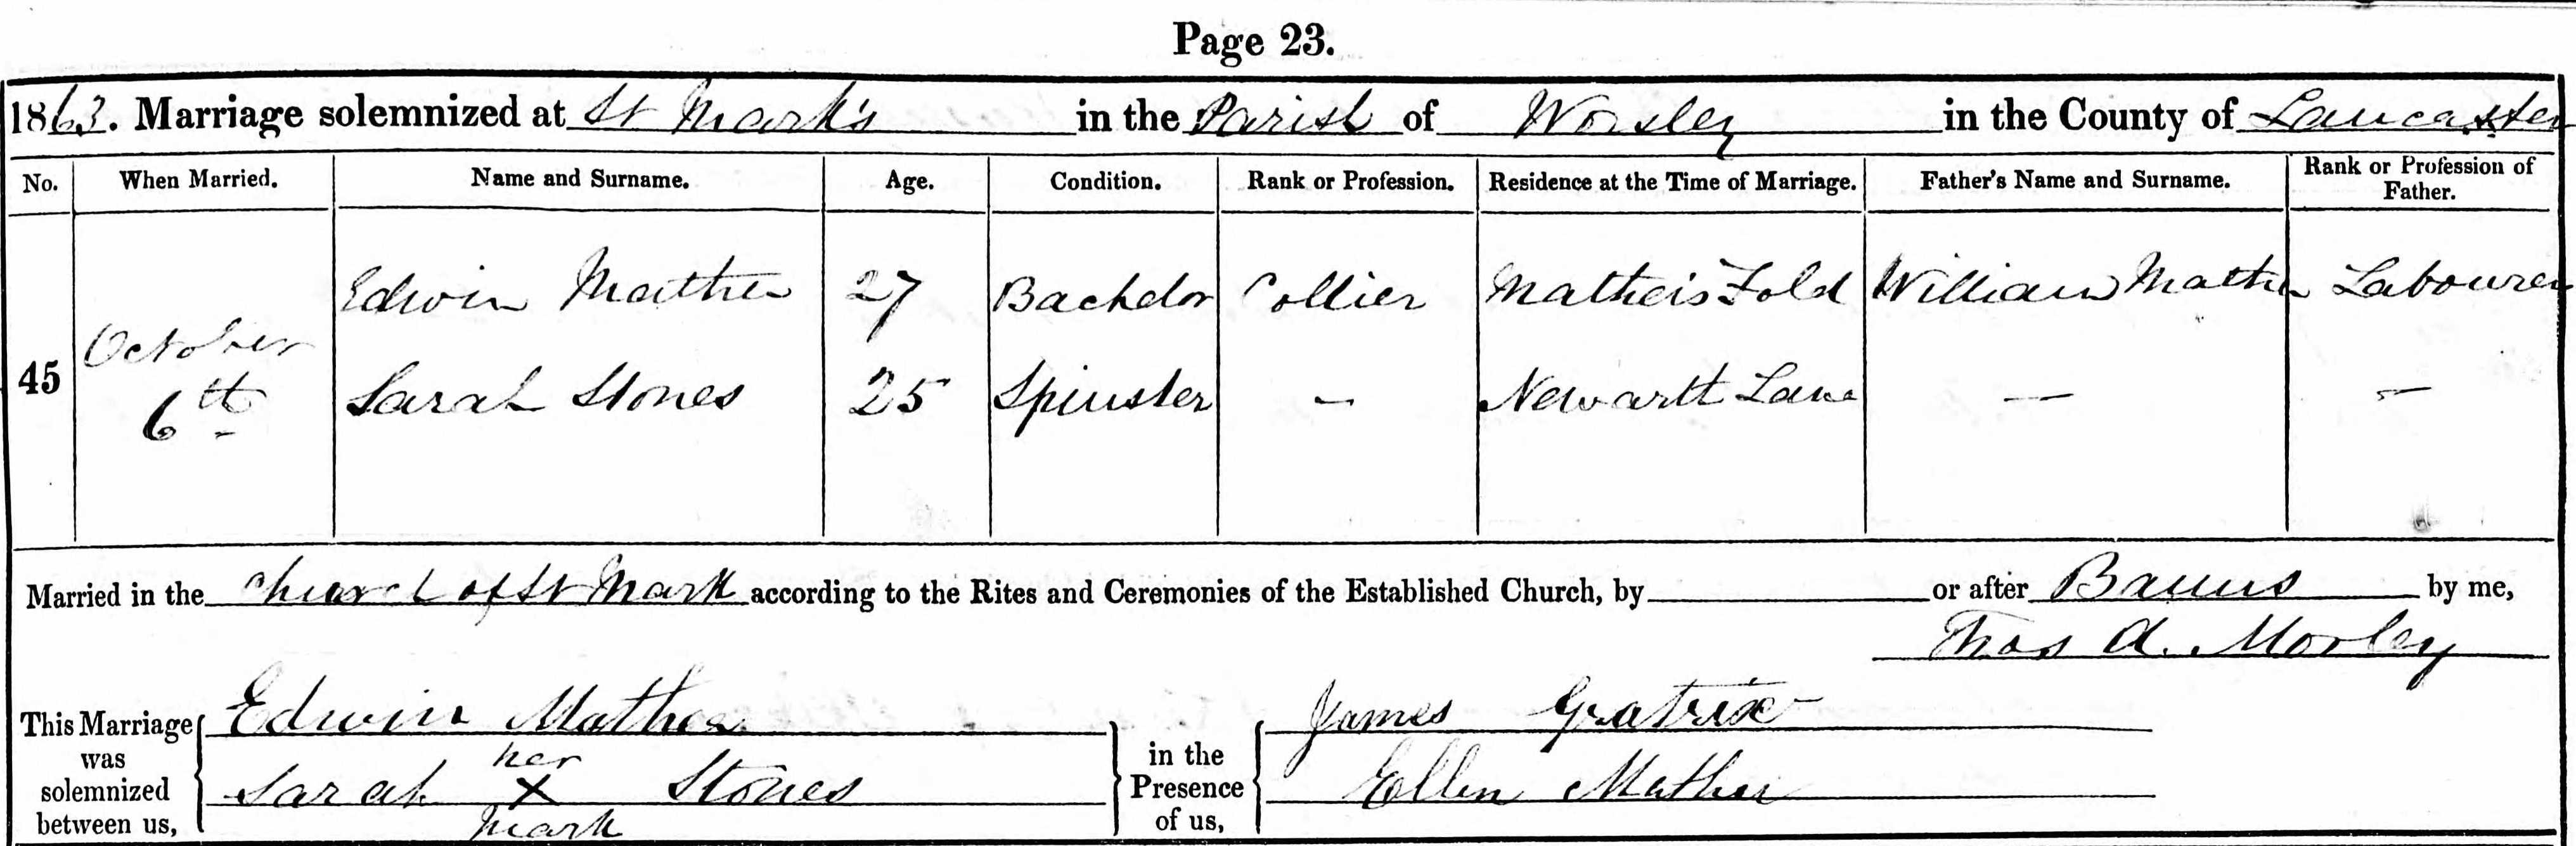 Page 23.
1863. Marriage solemnized at St Mark's in the Parish of Worsley in the County of Lancaster
No. When Married. Name and Surname. Age. Condition. Rank or Profession. Residence at the Time of Marriage. Father's Name and Surname. Rank or Profession of Father.
Edwin Mather 27 Bachelor Collier Mather's Fold William Mather Labourer
45 October 6th Sarah Stones 25 Spinster — Newarth Lane — —
Married in the Church of St Mark according to the Rites and Ceremonies of the Established Church, by or after Banns by me,
Thos A. Morley
This Marriage was solemnized between us,
Edwin Mather
Sarah her X mark Stones
in the Presence of us,
James Gratrix
Ellen Mather